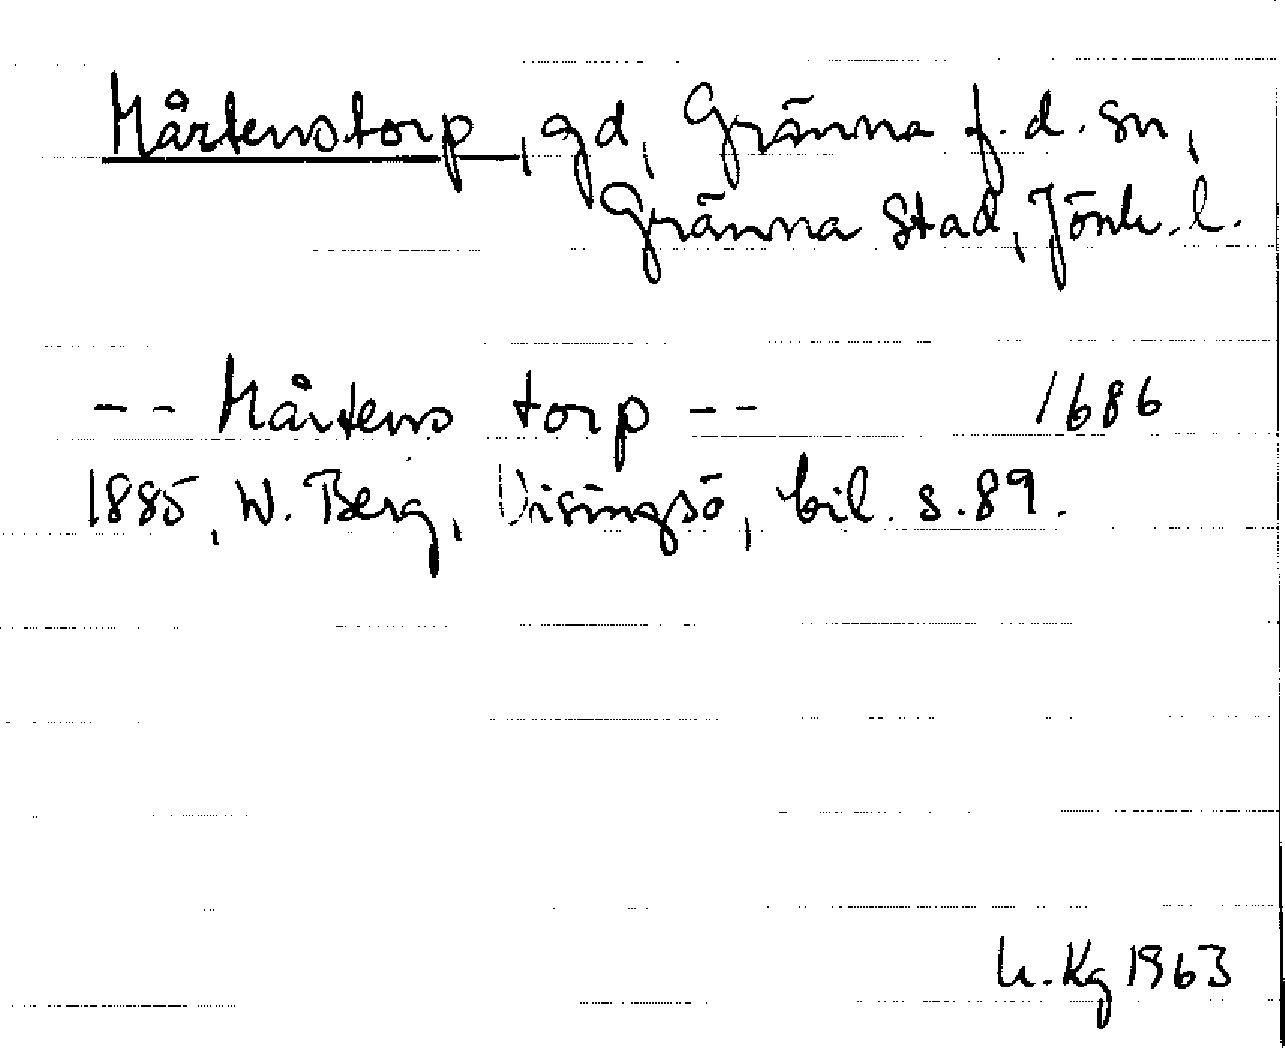 Mårtenstorp, gd, Gränna f.d. sn,
Gränna stad, Jönk. l.
-- Mårtens torp -- 1686
1885, W. Berg, Visingsö, bil. s. 89.
h. Kg 1963